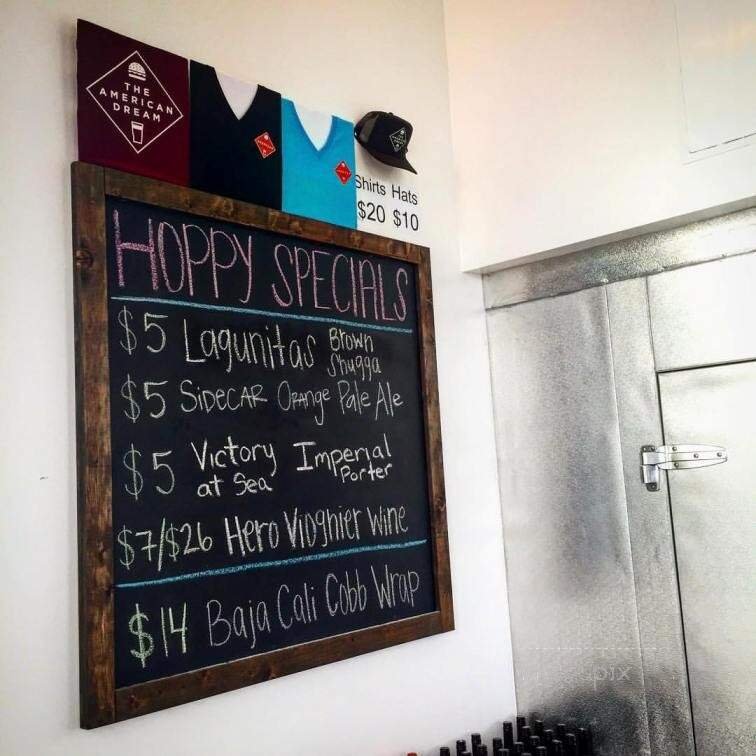 THE
AMERICAN
DREAM
Shirts Hats
$20 $10
HOPPY SPECIALS
$5 Lagunitas Brown
Shugga
$5 SIDECAR Orange Pale Ale
$5 Victory Imperial
at Sea Porter
$7/$26 Hero Vioghier Wine
$14 Baja Cali Cobb Wrap